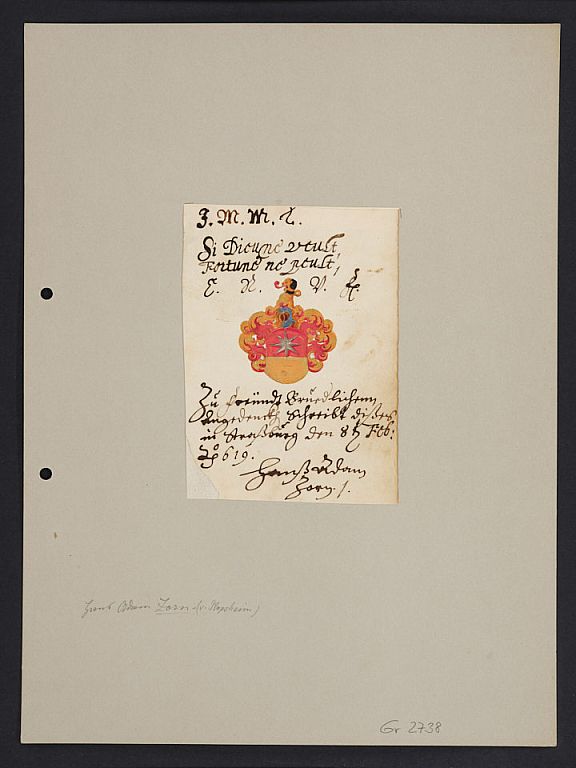 J. M. W. L.
Si Dieu ne veult
Fortune ne peult,
E. N. V. H.
Zu freündt Bruedlichem
Angedencken Schreibt disses
in Straßburg den 8 Feb:
Ao 619.
Hanß Adam
Zorn.
Hans Adam Zorn
Gr 2738